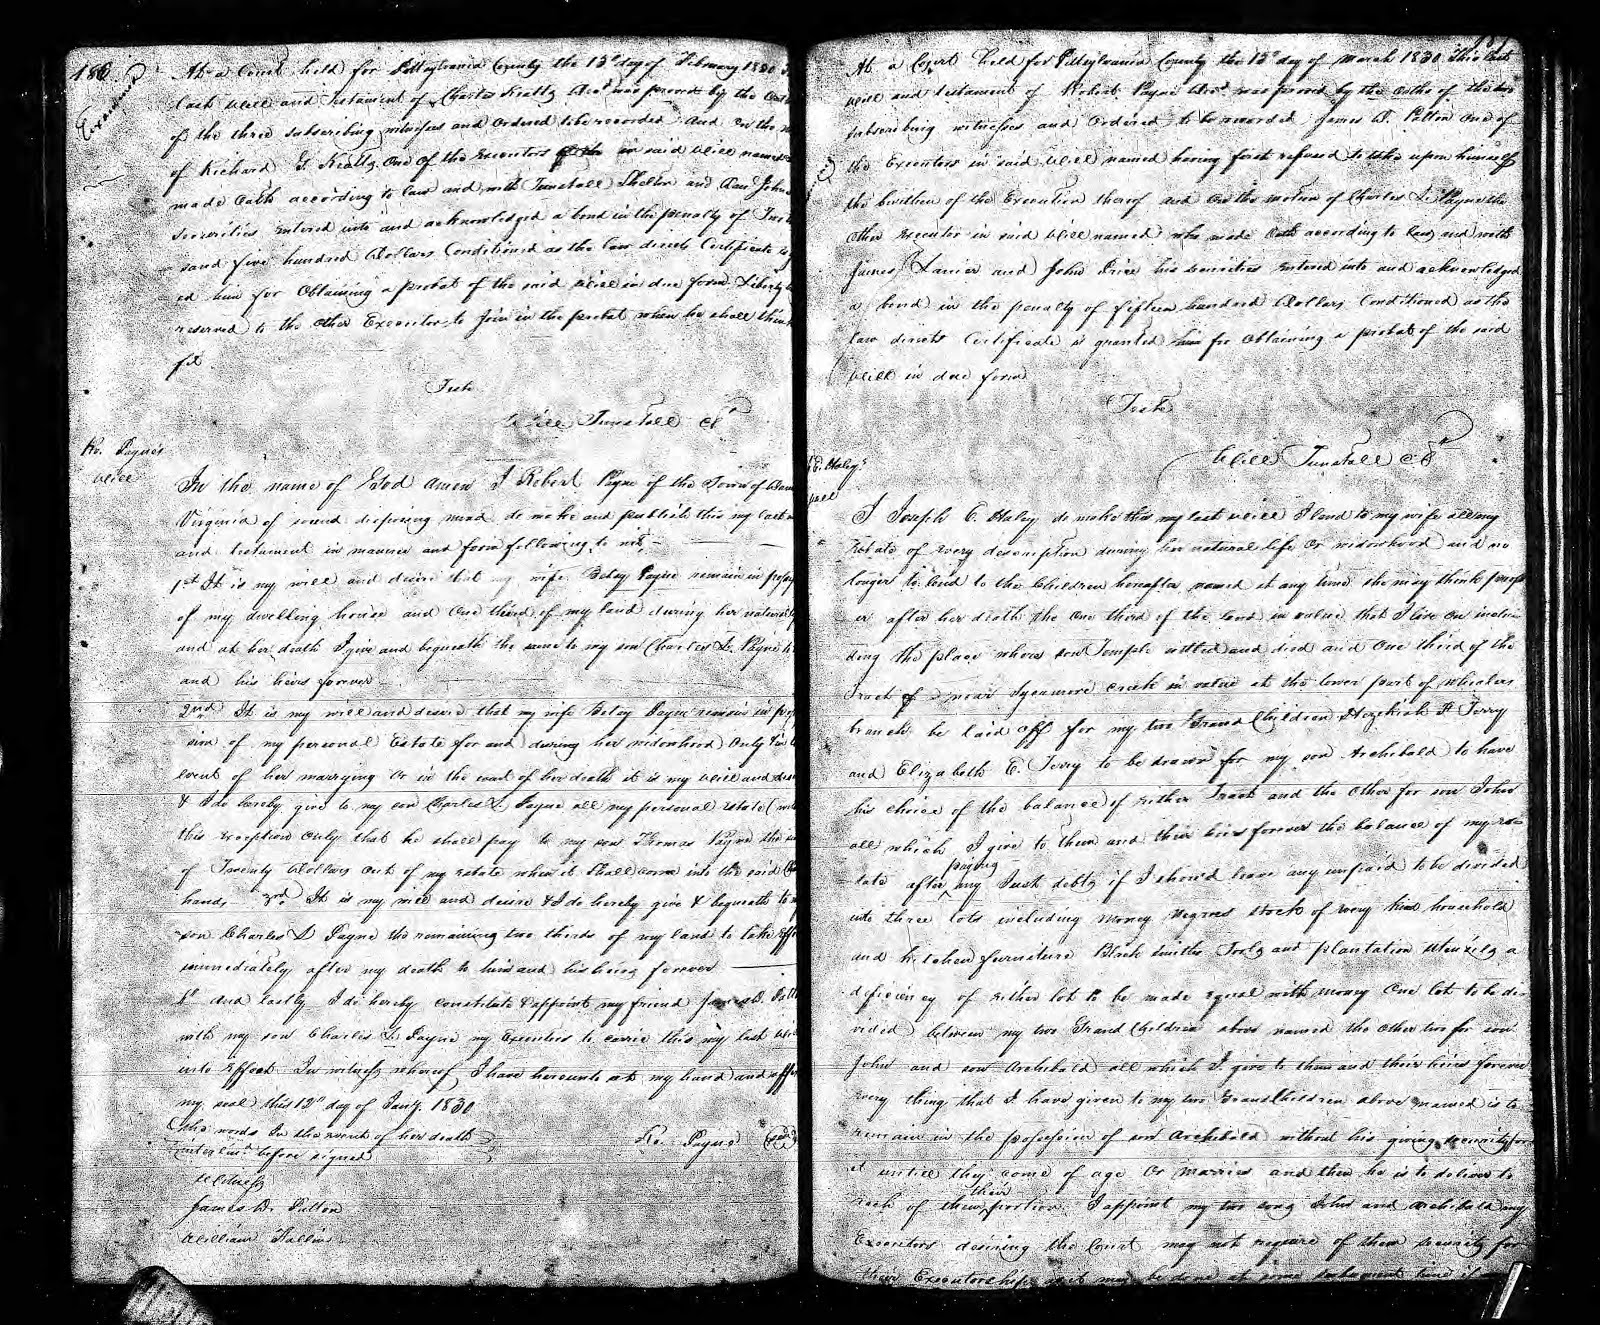 186
Examined
At a Court held for Pittsylvania County the 15th day of February 1830
last Will and Testament of Charles Keatts Decd was proved by the oaths
of the three subscribing witnesses and ordered to be recorded And on the
of Richard Keatts one of the Executors in said Will named
made Oath according to law and with Tunstall Shelton and John
securities entered into and acknowledged a bond in the penalty of
sand five hundred Dollars Conditioned as the law directs Certificate is
ed him for Obtaining a probat of the said Will in due form Liberty
reserved to the other Executor to Join in the probat when he shall think
fit
Teste
Will Tunstall Clk
Ro. Payne's
Will
In the name of God Amen I Robert Payne of the Town of
Virginia of sound disposing mind do make and publish this my last
and testament in manner and form following to wit
1st It is my will and desire that my wife Betsy Payne remain in
of my dwelling house and One third of my land during her natural
and at her death I give and bequeath the same to my son Charles L. Payne
and his heirs forever
2nd It is my will and desire that my wife Betsy Payne remain in
sion of my personal Estate for and during her widowhood Only
event of her marrying or in the event of her death it is my Will and
& I do hereby give to my son Charles L Payne all my personal estate
this exception only that he shall pay to my son Thomas Payne the
of Twenty Dollars out of my estate when it shall come into the said
hands 3rd It is my will and desire & I do hereby give & bequeath to
son Charles L Payne the remaining two thirds of my land to take
immediately after my death to him and his heirs forever
And lastly I do hereby constitute & appoint my friend James D.
with my son Charles L. Payne my Executors to carrie this my last
into Effect In witness whereof I have hereunto set my hand and
my seal this 12th day of Jany. 1830
The words In the event of her death
interlined before signed
Ro. Payne
Witness
James D. Patton
William
At a Court held for Pittsylvania County the 15th day of March 1830 This last
Will and testament of Robert Payne Decd. was proved by the oaths of the two
subscribing witnesses and Ordered to be recorded James D. Patton One of
the Executors in said Will named having first refused to take upon himself
the burthen of the Execution thereof and On the motion of Charles L. Payne the
other Executor in said Will named who made Oath according to law and with
James Lanier and John Price his securities entered into and acknowledged
a bond in the penalty of fifteen hundred Dollars Conditioned as the
law directs Certificate is granted him for Obtaining a probat of the said
Will in due form
Teste
Will Tunstall Clk
E. Haley's
Will
I Joseph E. Haley do make this my last Will I lend to my wife all my
Estate of every description during her natural life or widowhood and no
longer to lend to the Children hereafter named at any time she may think prop
er after her death the One third of the land in value that I live on inclu
ding the place where son Temple settled and died and One third of the
Tract near Sycamore creek in value at the lower part of Wheelers
branch be laid off for my two Grand Children Hezekiah F Terry
and Elizabeth E. Terry to be drawn for my son Archibald to have
his choice of the balance of either Tract and the other for son John
all which I give to them and their heirs forever the balance of my es
tate after paying any Just debts if I should leave any unpaid to be divided
into three lots including Money Negroes Stock of every kind household
and kitchen furniture Black smiths Tools and plantation Utensils a
deficiency of either lot to be made equal with Money One lot to be di
vided between my two Grand Children above named the other two for son
John and son Archibald all which I give to them and their heirs forever
every thing that I have given to my two Grand Children above named is to
remain in the possession of son Archibald without his giving security for
it until they come of age Or Marries and then he is to deliver to
each of them their portion. I appoint my two sons John and Archibald my
Executors desiring the Court may not require of them security for
their Executorship